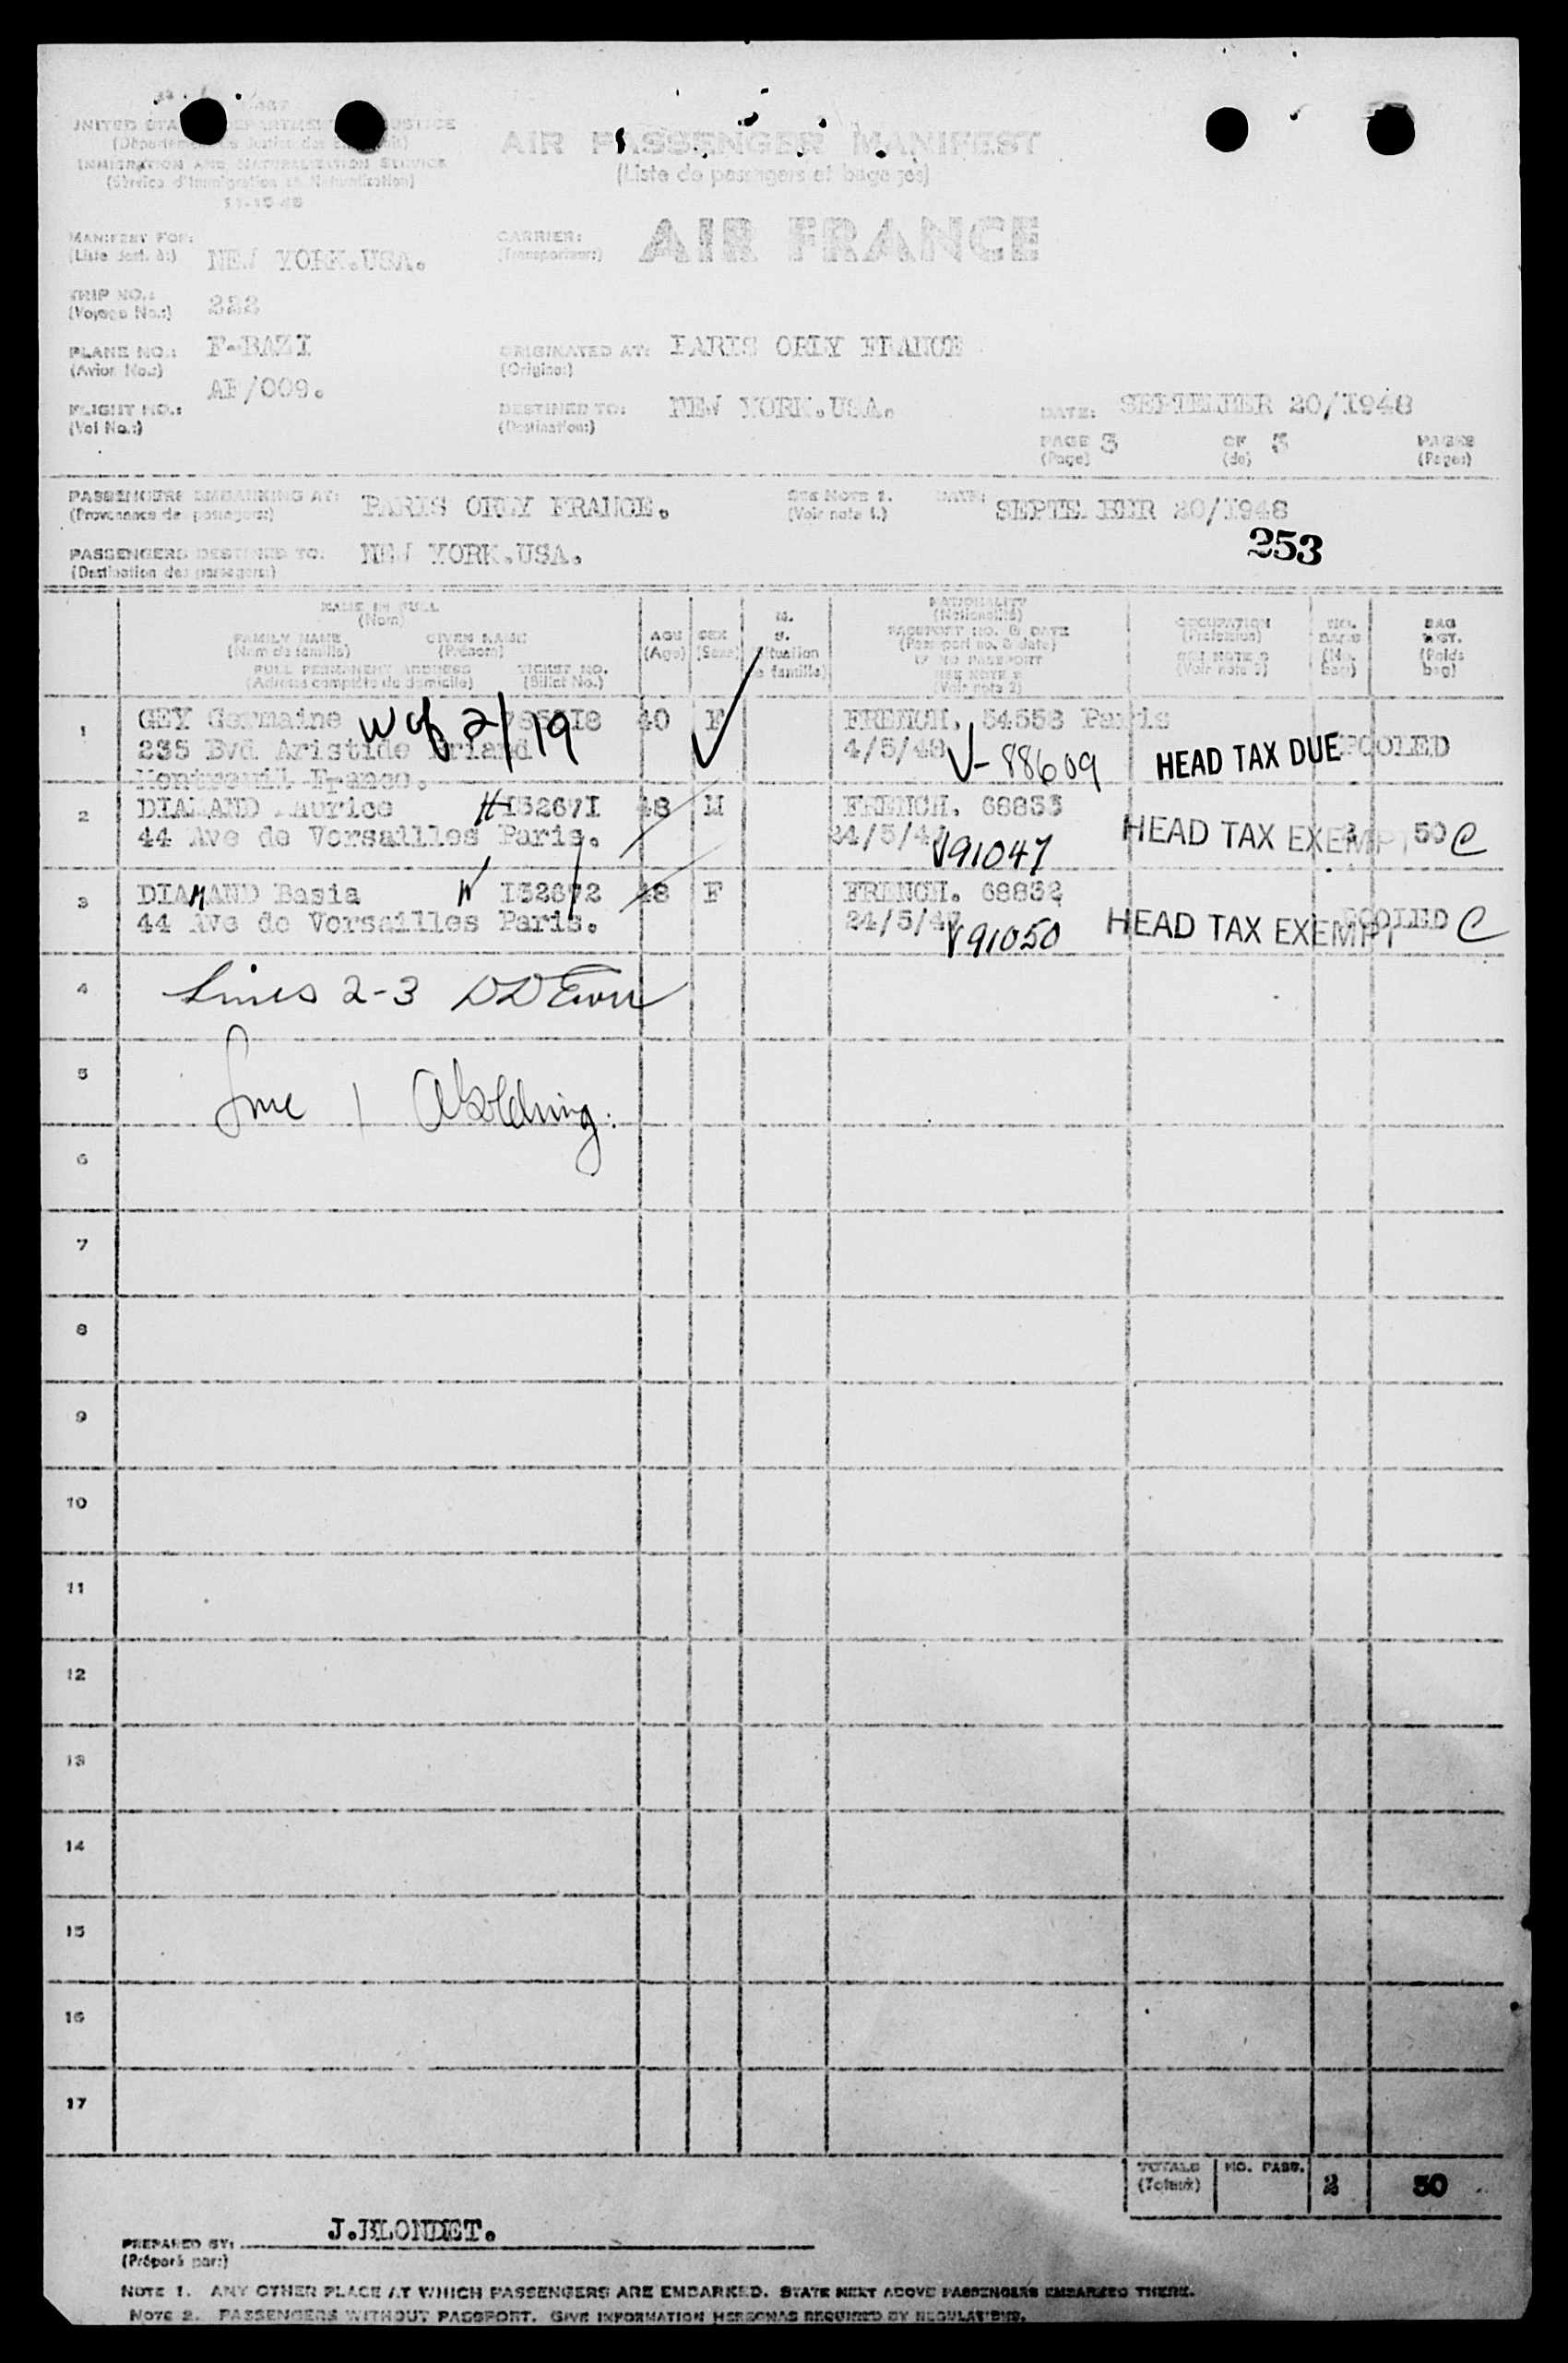 UNITED STATES DEPARTMENT OF JUSTICE
IMMIGRATION AND NATURALIZATION SERVICE
(Service d'Immigration et Naturalisation)
AIR PASSENGER MANIFEST
(Liste de passagers et bagages)
MANIFEST FOR:
NEW YORK.USA.
CARRIER:
(Transporteur:)
AIR FRANCE
TRIP NO.:
(Voyage No.:)
222
PLANE NO.:
(Avion No.:)
F-BAZI
ORIGINATED AT:
(Origine:)
PARIS ORLY FRANCE
FLIGHT NO.:
(Vol No.:)
AF/009.
DESTINED TO:
(Destination:)
NEW YORK.USA.
DATE: SEPTEMBER 20/I948
PAGE 3 OF PAGES
(Page) (de) (Pages)
PASSENGERS EMBARKING AT:
(Provenance des passagers:)
PARIS ORLY FRANCE.
SEE NOTE 1.
(Voir note 1.)
DATE: SEPTE BER 20/I948
253
PASSENGERS DESTINED TO:
(Destination des passagers:)
NEW YORK.USA.
NAME IN FULL
(Nom)
FAMILY NAME GIVEN NAME
(Nom de famille) (Prénom)
FULL PERMANENT ADDRESS TICKET NO.
(Adresse complète de domicile) (Billet No.)
AGE
(Age)
SEX
(Sexe)
NATIONALITY
(Nationalité)
PASSPORT NO. & DATE
(Passport no. & date)
IF NO PASSPORT
SEE NOTE 2
(Voir note 2)
OCCUPATION
(Profession)
NO. BAGS
BAG WGT.
(Poids bag)
1 GEY Germaine 40 F FRENCH. 54553 Paris
235 Bvd Aristide Briand 4/5/48 V-88609 HEAD TAX DUE POOLED
Montreuil France.
2 DIAMAND Maurice I3267I 48 M FRENCH. 68833
44 Ave de Versailles Paris. V91047 HEAD TAX EXEMPT 2 50 C
3 DIAMAND Basia I32672 48 F FRENCH. 68832
44 Ave de Versailles Paris. 24/5/47 V91050 HEAD TAX EXEMPT POOLED C
4 Lines 2-3
5 Line 1
6
7
8
9
10
11
12
13
14
15
16
17
TOTALS NO. PASS. 2 50
(Totaux)
PREPARED BY: J.BLONDET.
(Préparé par:)
NOTE 1. ANY OTHER PLACE AT WHICH PASSENGERS ARE EMBARKED. STATE NEXT ABOVE PASSENGERS EMBARKED THERE.
NOTE 2. PASSENGERS WITHOUT PASSPORT. GIVE INFORMATION HEREON AS REQUIRED BY REGULATIONS.